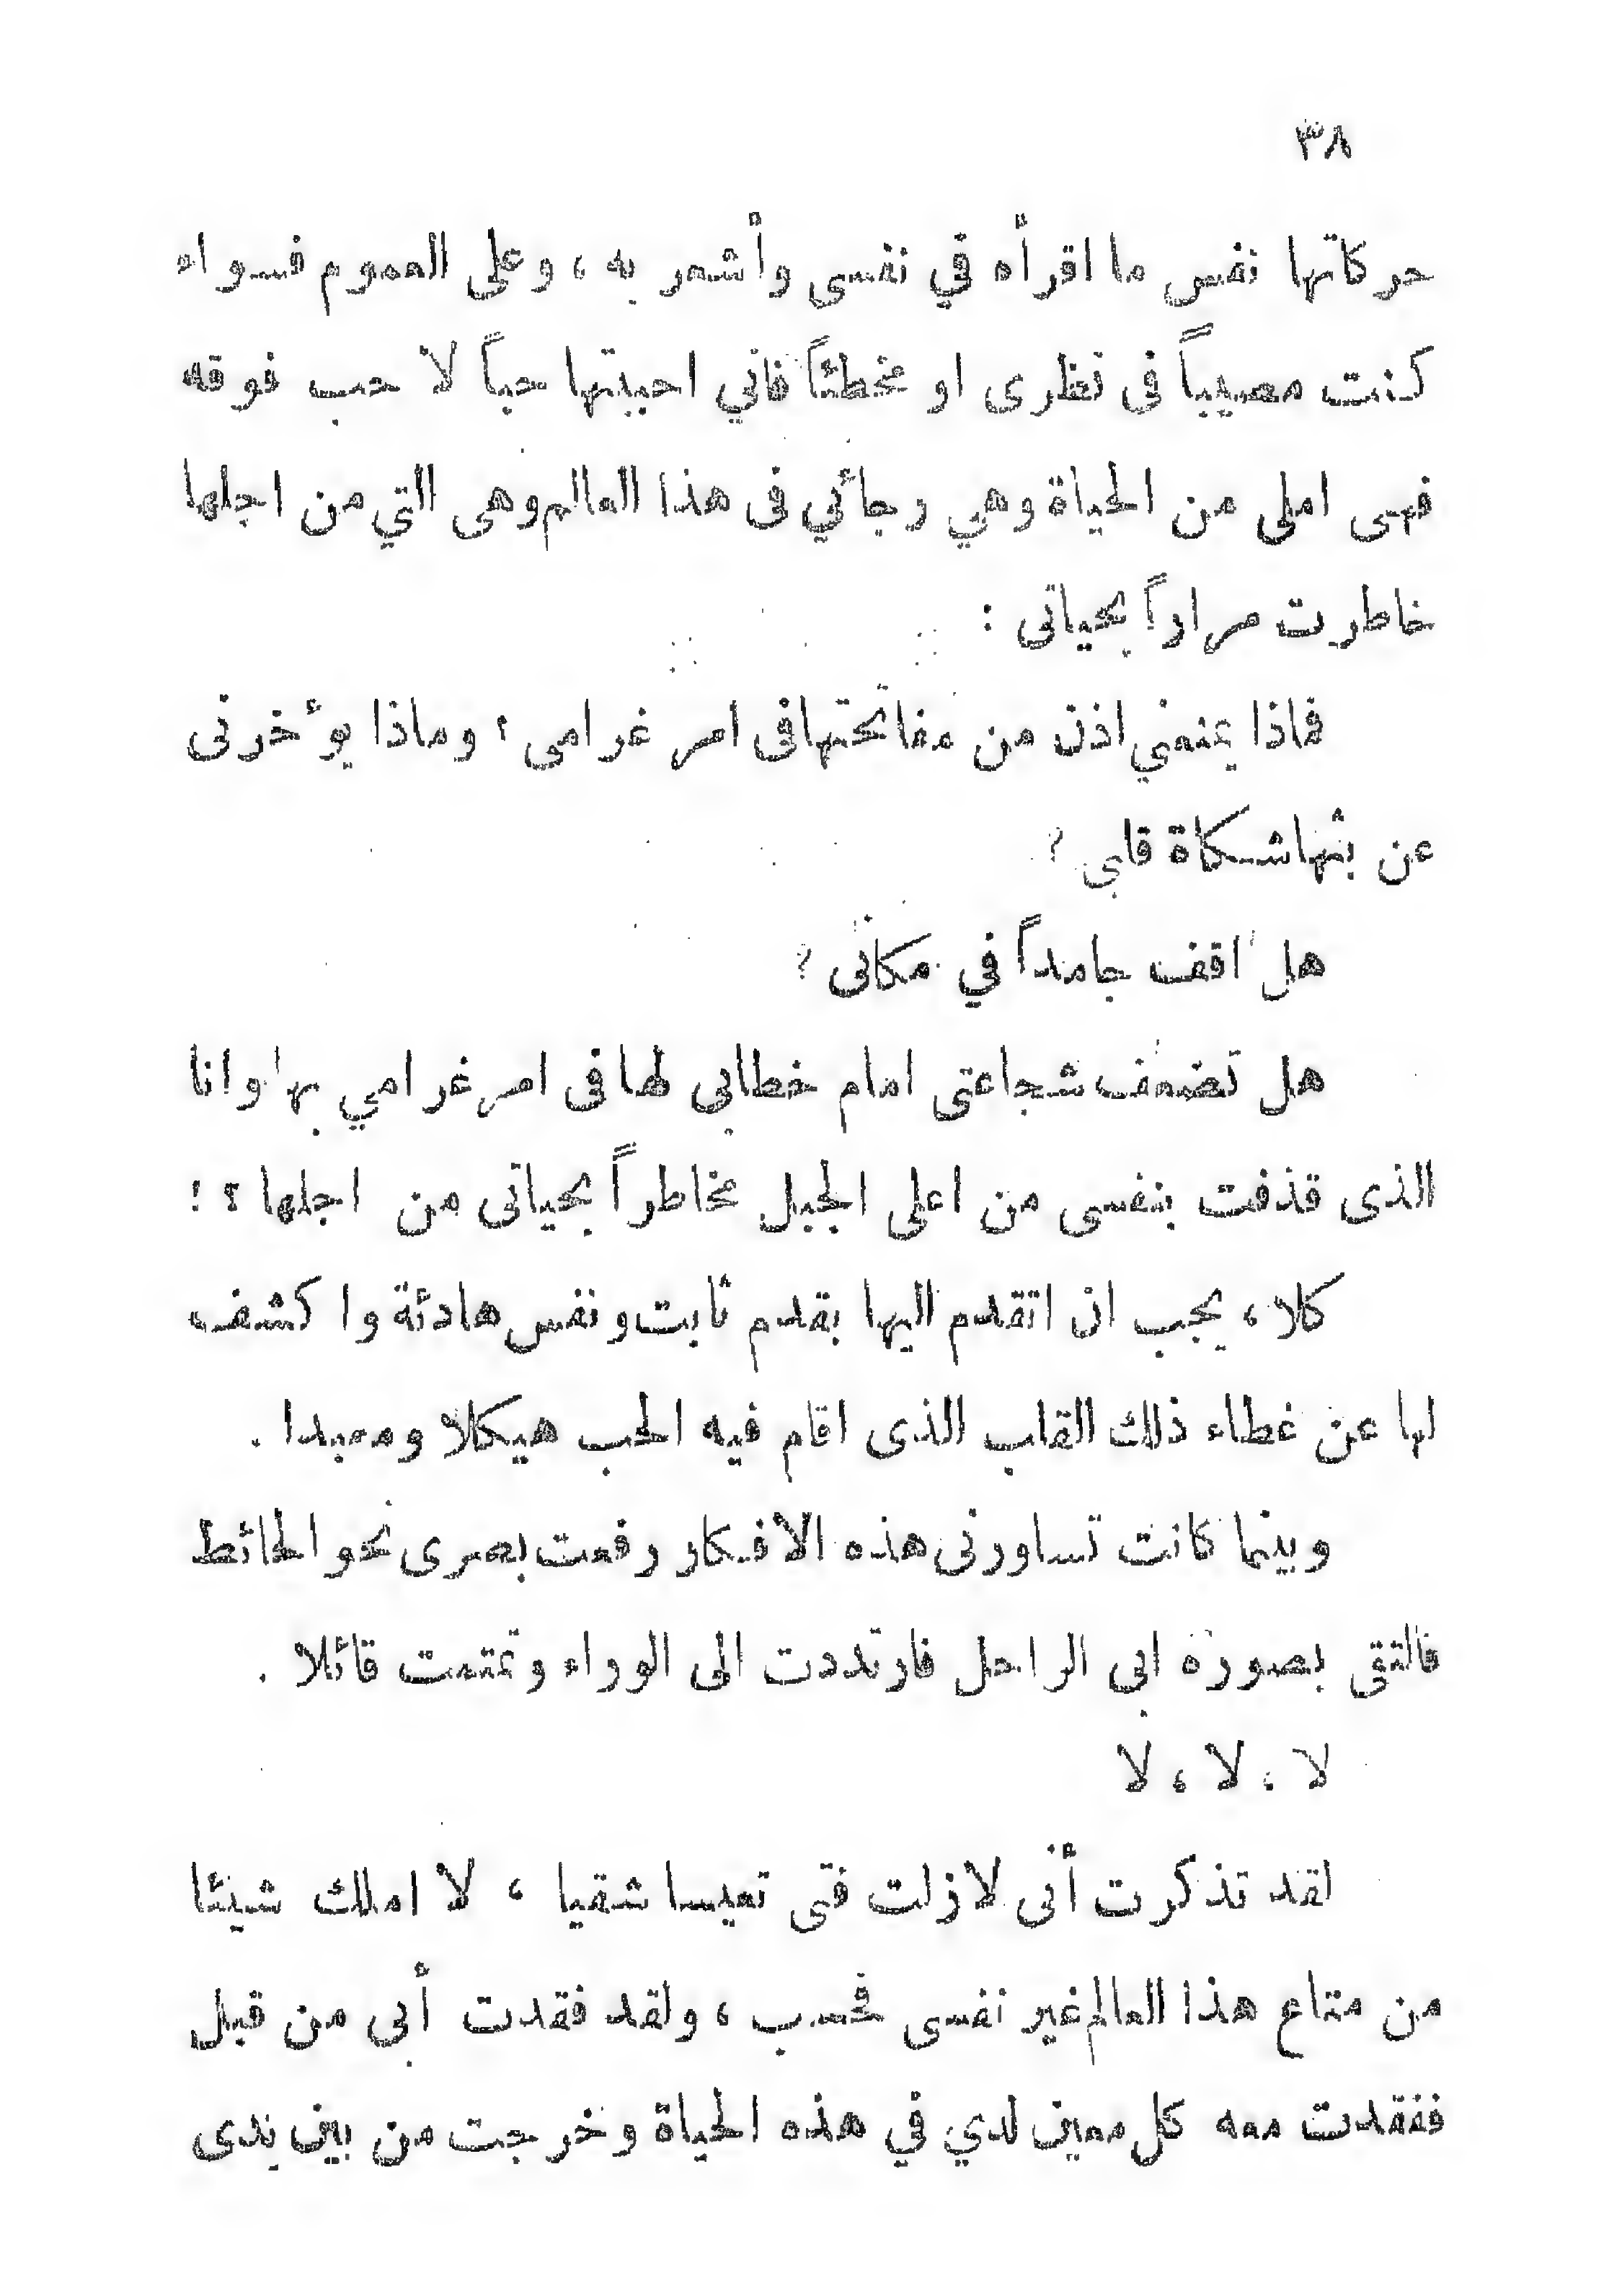 ٣٨
حركاتها نفس ما اقرأه في نفسى وأشعر به ، وعلى العموم فسواء
كنت مصيباً فى نظرى او مخطئاً فاني احببتها حباً لا حب فوقه
فهى املى من الحياة وهي رجائي فى هذا العالم وهى التي من اجلها
خاطرت مراراً بحياتى :
فماذا يمنعني اذن من مفاتحتها فى امر غرامى ؟ وماذا يؤخرنى
عن بثها شكاة قلبي ؟
هل اقف جامداً في مكانى ؟
هل تضعف شجاعتى امام خطابى لها فى امر غرامي بها وانا
الذى قذفت بنفسى من اعلى الجبل مخاطراً بحياتى من اجلها ؟ !
كلا ، يجب ان اتقدم اليها بقدم ثابت ونفس هادئة واكشف
لها عن غطاء ذلك القلب الذى اقام فيه الحب هيكلا ومعبدا .
وبينما كانت تساورنى هذه الافكار رفعت بصرى نحو الحائط
فالتقى بصورة ابى الراحل فارتددت الى الوراء وتمتمت قائلا .
لا ، لا ، لا
لقد تذكرت أنى لازلت فتى تعيسا شقيا ، لا املك شيئا
من متاع هذا العالم غير نفسى فحسب ، ولقد فقدت أبى من قبل
ففقدت معه كل معين لدي في هذه الحياة وخرجت من بين يدى